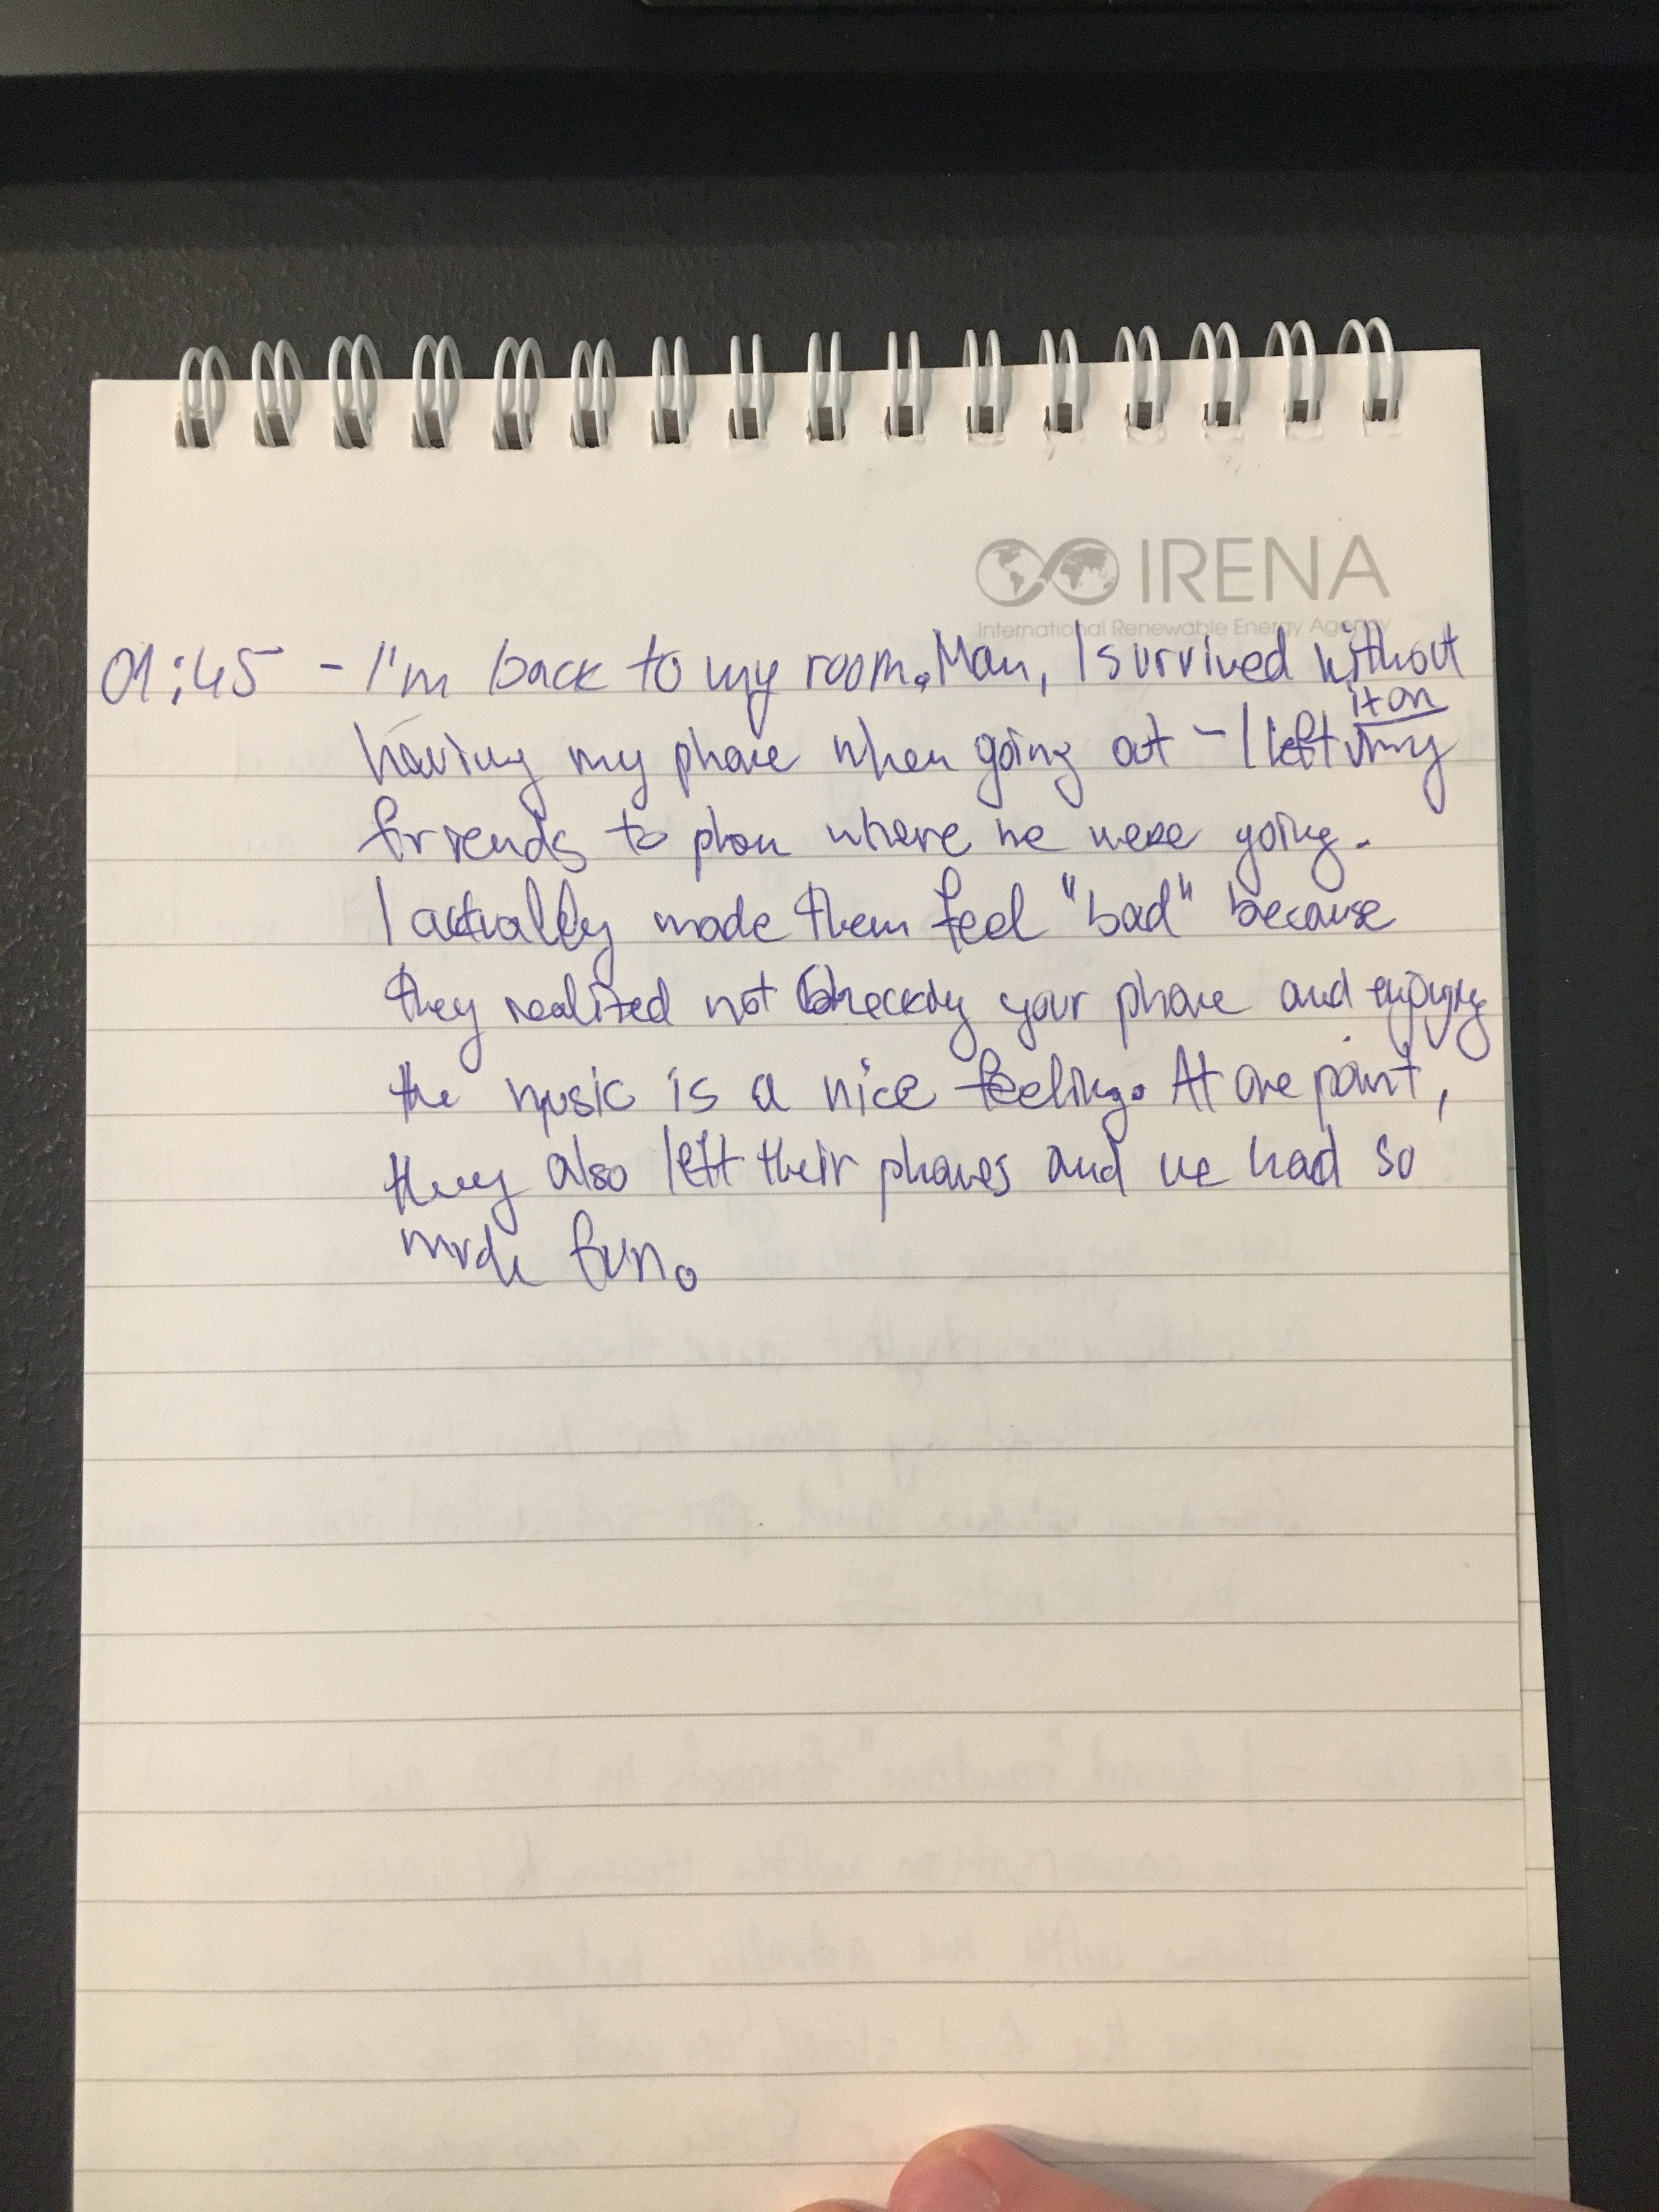 IRENA
International Renewable Energy Agency
01:45 - I'm back to my room. Man, I survived without
having my phone when going out - I left it on my
friends to plan where we were going.
I actually made them feel "bad" because
they realized not checking your phone and enjoying
the music is a nice feeling. At one point,
they also left their phones and we had so
much fun.